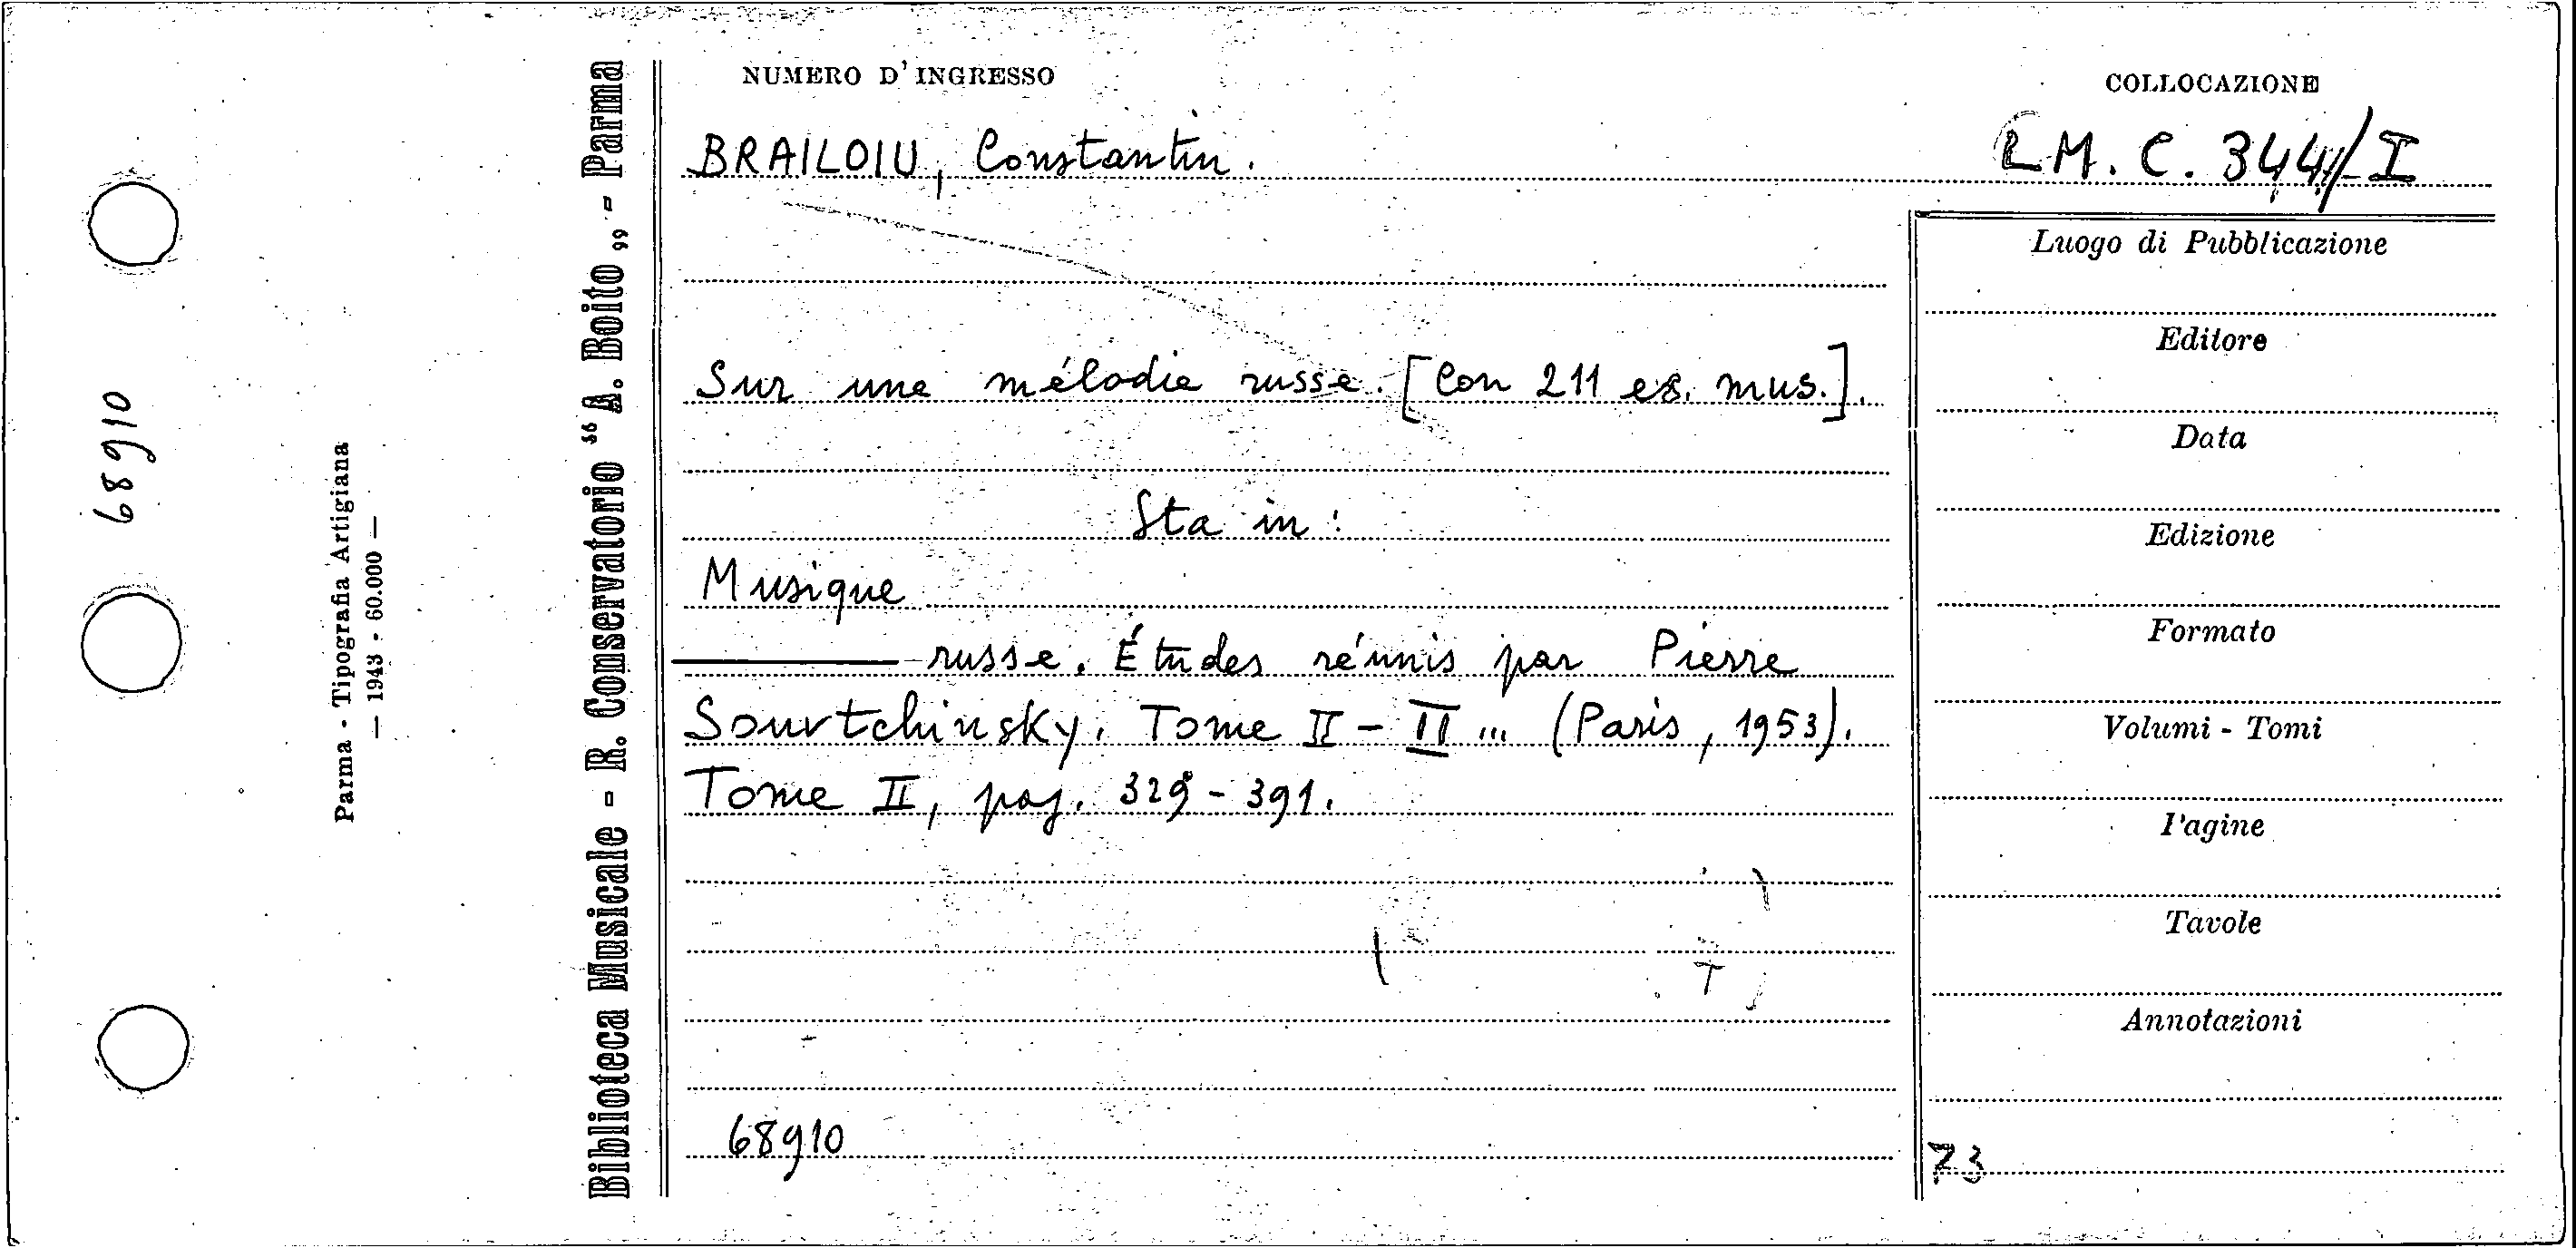 NUMERO D'INGRESSO
COLLOCAZIONE
BRAILOIU, Constantin.
LM. C. 344/I
Sur une mélodie russe. [Con 211 es. mus.].
Sta in:
Musique
russe. Études réunis par Pierre
Souvtchinsky. Tome II - II ... (Paris, 1953).
Tome II, pag. 329 - 391.
68910
Luogo di Pubblicazione
Editore
Data
Edizione
Formato
Volumi - Tomi
Pagine
Tavole
Annotazioni
73
Biblioteca Musicale - R. Conservatorio “A. Boito„ - Parma
Parma - Tipografia Artigiana
— 1943 - 60.000 —
68910